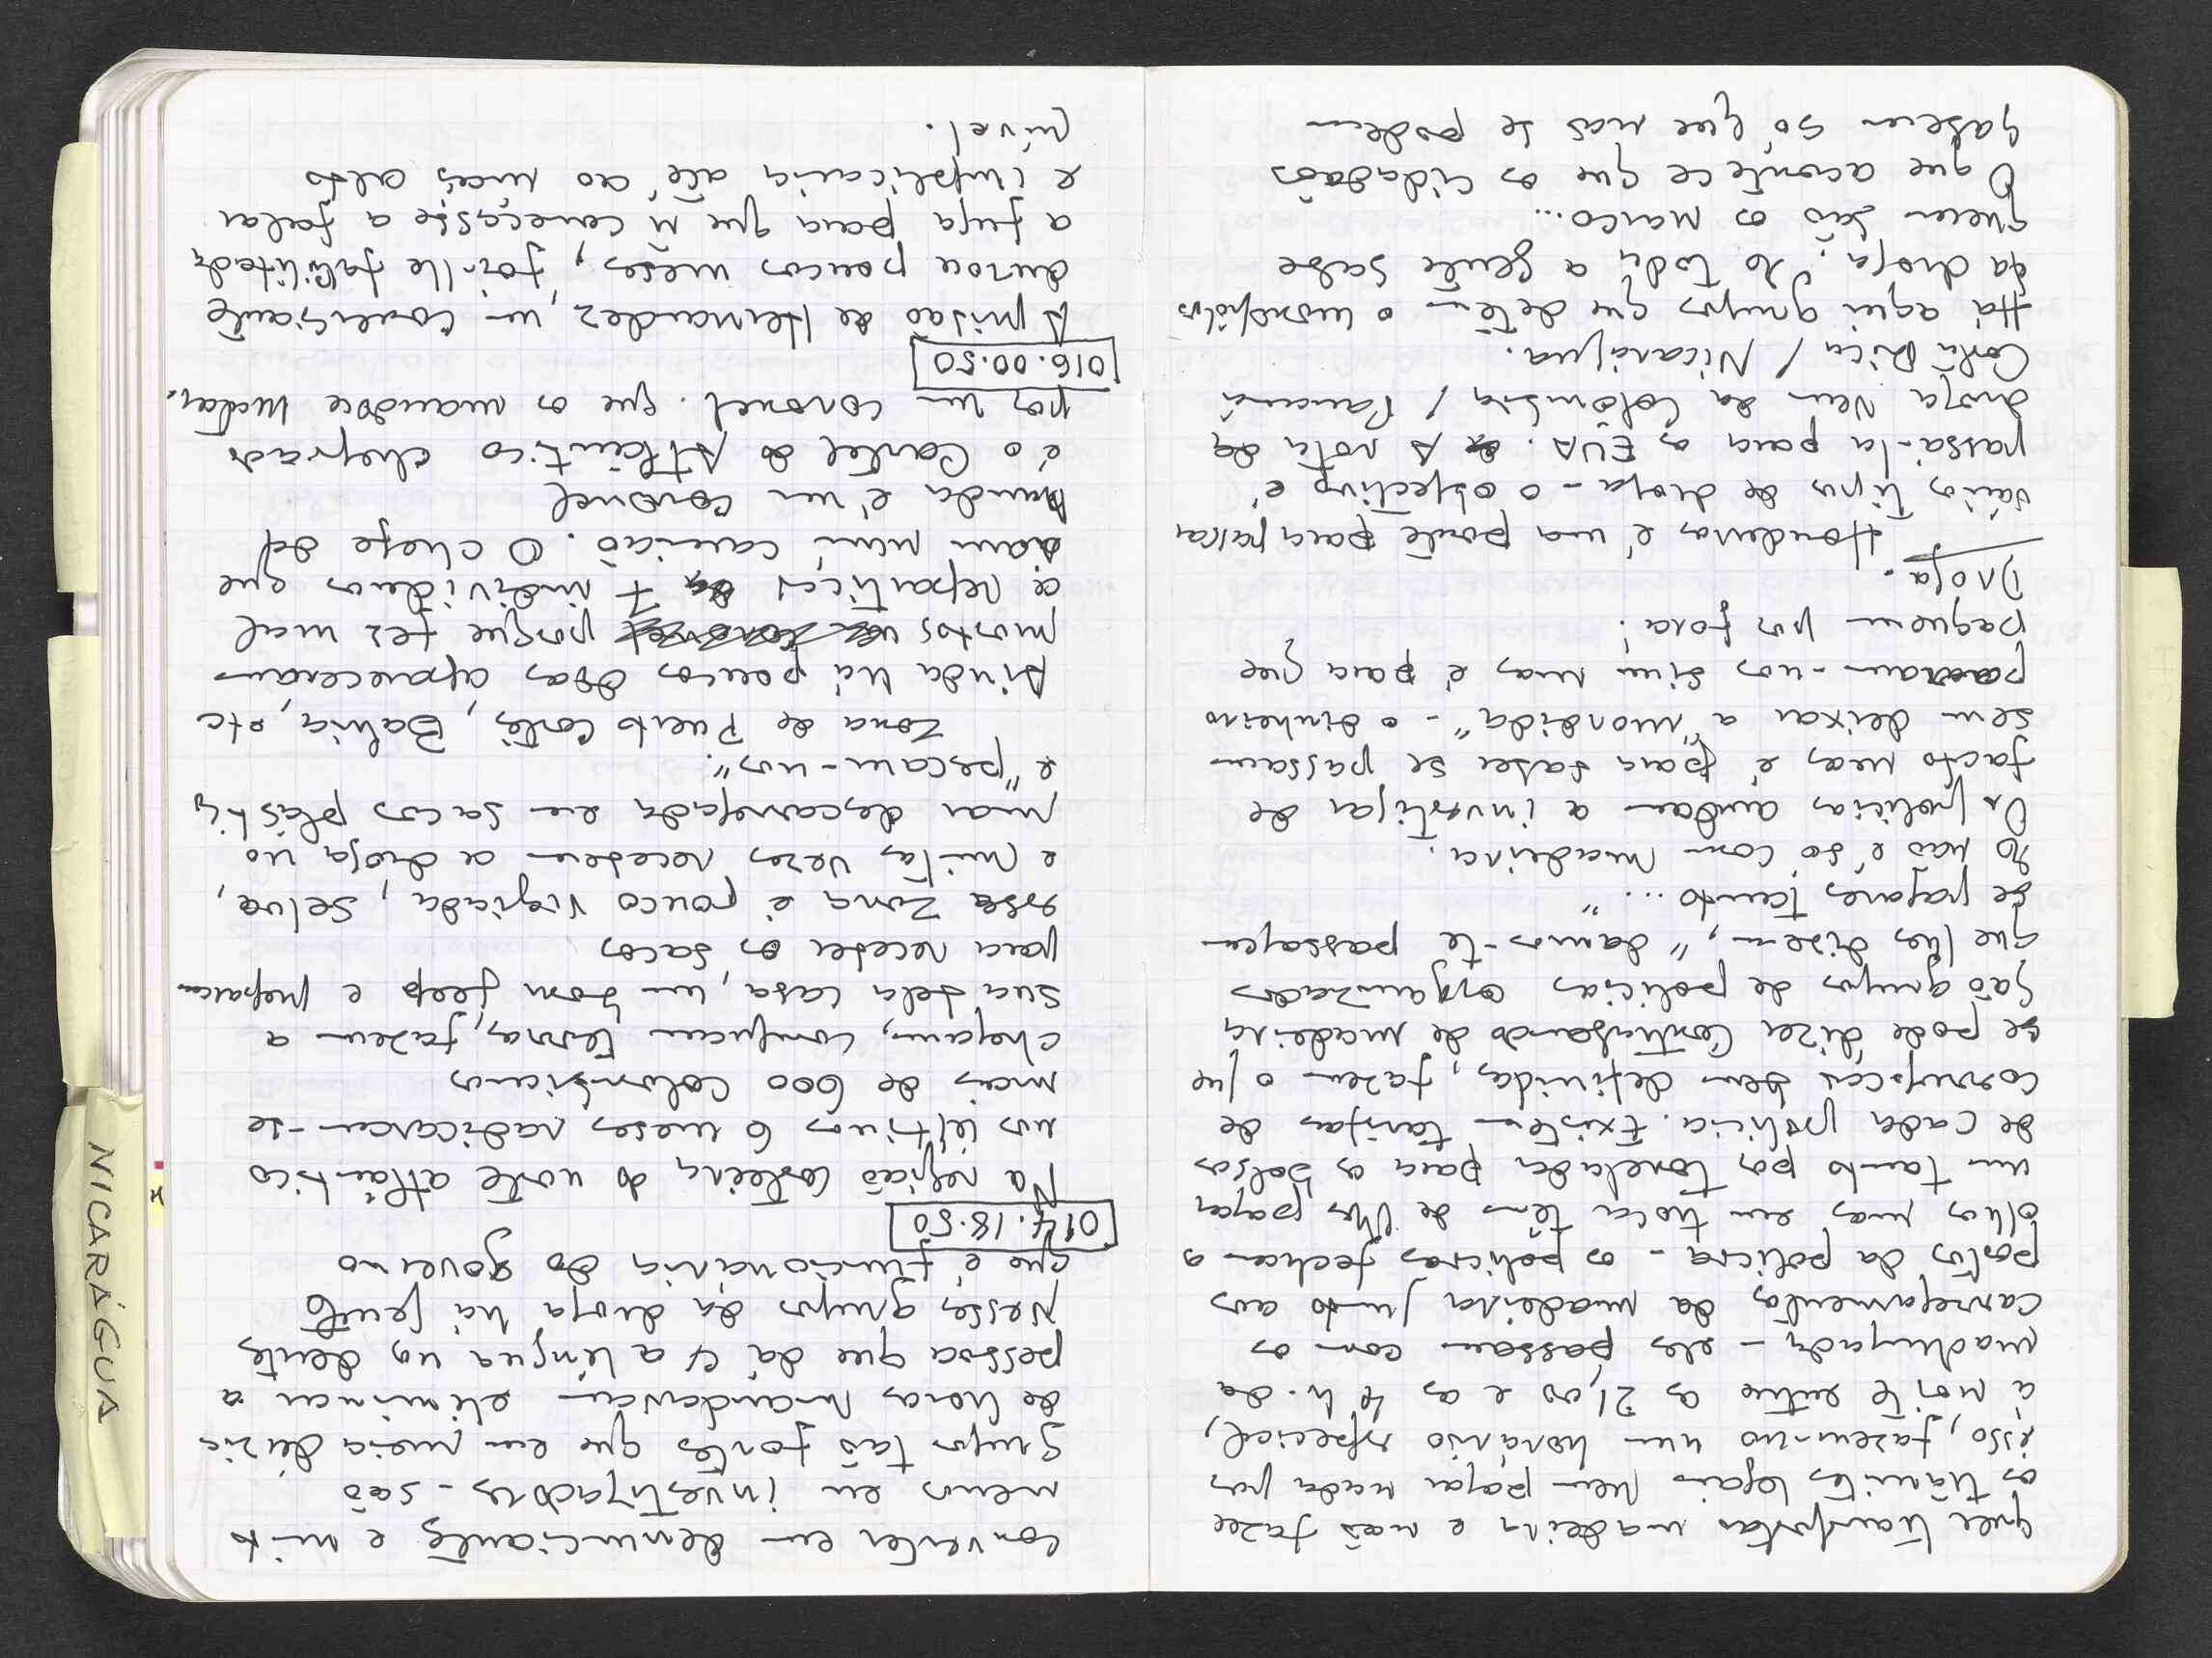 quer transportar madeira e não fazer
os trâmites legais nem pagar nada por
isso, fazem-no num horário especial,
à noite entre as 21,00 e as 4 h. da
madrugada - eles passam com os
carregamentos da madeira junto aos
postos da polícia - os policias fecham os
olhos mas em troca têm de lhes pagar
um tanto por tonelada para os bolsos
de cada polícia. Existem tarifas de
corrupção bem definidas, fazem o que
se pode dizer contrabando de madeira
São grupos de policias organizados
que lhes dizem, "damos-te passagem
se pagares tanto ..."
não é só com madeira.
Os policias andam a investigar de
facto mas é para saber se passam
sem deixar a "mordida" - o dinheiro
param-nos sim mas é para que
paguem por fora!
Droga.
Honduras é uma ponte para passar
vários tipos de droga - o objectivo é
passá-la para os EUA. A rota da
droga vem da Colômbia / Panamá
Costa Rica / Nicarágua.
Há aqui grupos que detêm o monopólio
da droga. Toda a gente sabe
quem são os narco...
O que acontece que os cidadãos
sabem só que não se podem
converter em denunciante e muito
menos em investigadores - são
grupos tão fortes que em meia dúzia
de horas mandavam eliminar a
pessoa que dá c/ a língua nos dentes
Nesses grupos da droga há gente
que é funcionária do governo
014.18.50
Na região costeira do norte atlântico
nos últimos 6 meses radicaram-se
mais de 600 colombianos
chegam, compram terras, fazem a
sua bela casa, um bom jeep e preparam
para receber os sacos
essa zona é pouco vigiada, selva,
e muitas vezes recebem a droga no
mar descarregada em sacos plástico
e "pescam-nos".
Zona de Puerto Cortés, Bahia, etc
Ainda há poucos dias apareceram
mortos porque fez mal
a repartição 7 indivíduos que
iam num camião. O chefe da
banda é um coronel
é o Cartel do Atlântico chefiado
por um coronel que os mandou matar.
016.00.50
A prisão de Hernandez um comerciante
durou poucos meses, foi-lhe facilitada
a fuga para que ñ começasse a falar
e implicaria até ao mais alto
nível.
NICARÁGUA